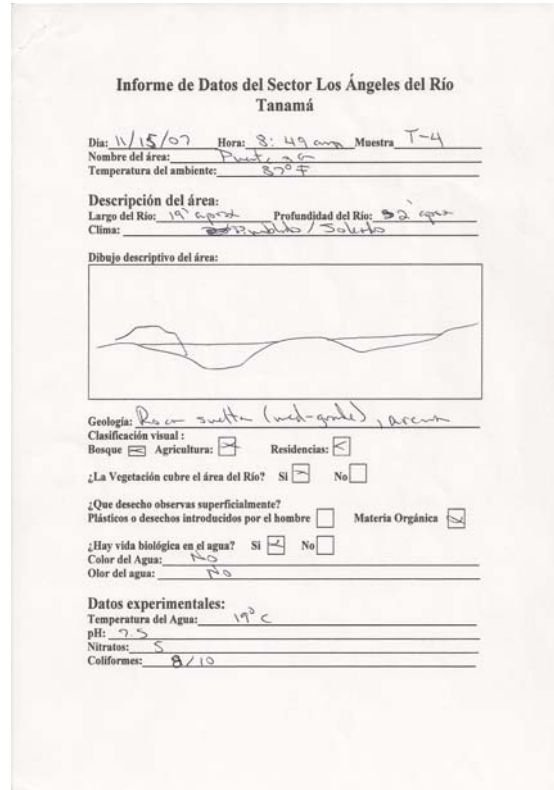 Informe de Datos del Sector Los Ángeles del Río
Tanamá
Día: 11/15/07 Hora: 8:49 am Muestra T-4
Nombre del área:
Temperatura del ambiente: 87° F
Descripción del área:
Largo del Río: 19' aprox Profundidad del Río: 2' aprox
Clima: Nublado / Soleado
Dibujo descriptivo del área:
Geología: Roca suelta (med-grande), arena
Clasificación visual :
Bosque Agricultura: Residencias:
¿La Vegetación cubre el área del Río? Si No
¿Que desecho observas superficialmente?
Plásticos o desechos introducidos por el hombre Materia Orgánica
¿Hay vida biológica en el agua? Si No
Color del Agua: No
Olor del agua: No
Datos experimentales:
Temperatura del Agua: 19° C
pH: 7.5
Nitratos: 5
Coliformes: 8/10